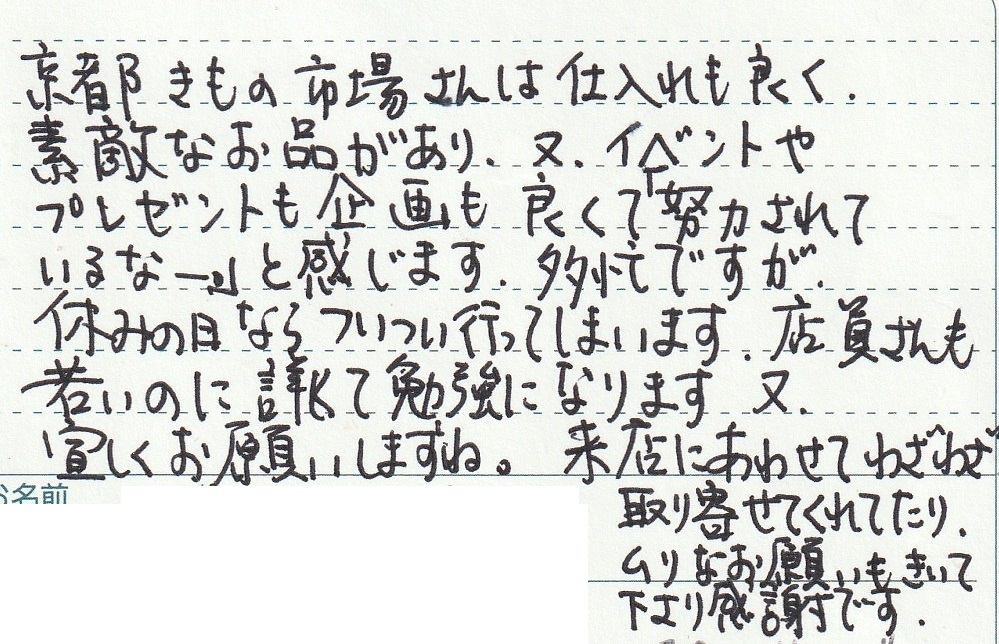 京都きもの市場さんは仕入れも良く.
素敵なお品があり、又、イベントや
プレゼントも企画も良くて「努力されて
いるなー」と感じます. 多忙ですが、
休みの日ならついつい行ってしまいます. 店員さんも
若いのに詳しくて勉強になります 又、
宜しくお願いしますね。 来店にあわせてわざわざ
取り寄せてくれてたり、
ムリなお願いもきいて
下さり感謝です.
お名前